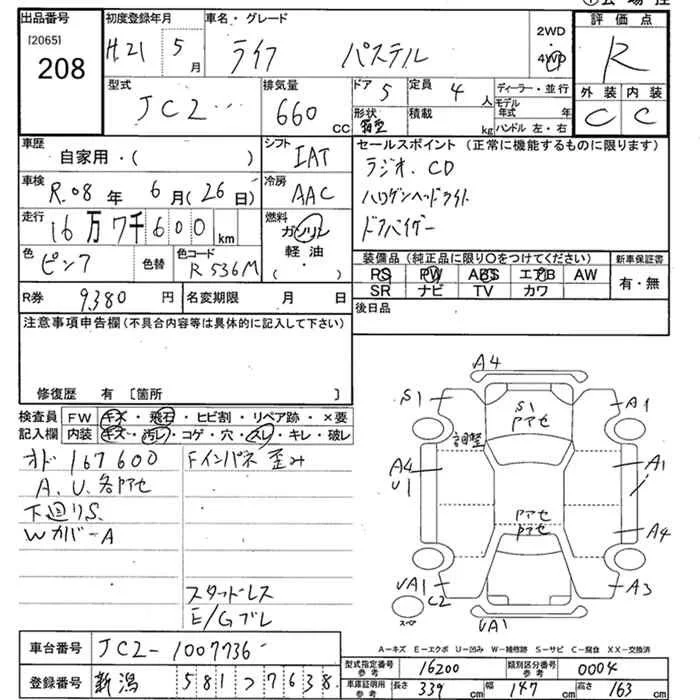 出品番号 初度登録年月 車名・グレード 評価点
[2065] 208 H.21 5月 ライフ パステル 2WD 4WD R
型式 排気量 ドア 5 定員 4人 ディーラー・並行 外装 内装
JC2 660 CC 形状 箱型 積載 kg モデル年式 年 ハンドル 左・右 C C
車歴 自家用・( ) シフト IAT セールスポイント (正常に機能するものに限ります)
ラジオ、CD
車検 R.08年 6月(26日) 冷房 AAC ハロゲンヘッドライト
走行 16万7千600km 燃料 ガソリン 軽油 ( ) ドアバイザー
色 ピンク 色替 色コード R536M 装備品 (純正品に限り○をつけてください) 新車保証書
PS PW ABS エアB AW 有・無
R券 9,380円 名変期限 月 日 SR ナビ TV カワ
注意事項申告欄(不具合内容等は具体的に記入して下さい) 後日品
修復歴 有 [箇所 ]
検査員 FW キズ・飛石・ヒビ割・リペア跡・×要
記入欄 内装 キズ・汚レ・コゲ・穴・スレ・キレ・破レ
オド 167600 Fインパネ歪み
A、U、各アセ
下廻りS
Wカバー A
スタッドレス
E/Gブレ
A4
S1 A1
S1
アアセ
A4 A1
U1
アアセ
アアセ A4
UA1 A3
C2
スペア UA1
A-キズ E-エクボ U-凹み W-補修跡 S-サビ C-腐食 XX-交換済
車台番号 JC2-1007736 型式指定番号 参考 16200 類別区分番号 参考 0004
登録番号 新潟 581 ツ 7638 車庫証明用 参考 長さ 339cm 幅 147cm 高さ 163cm